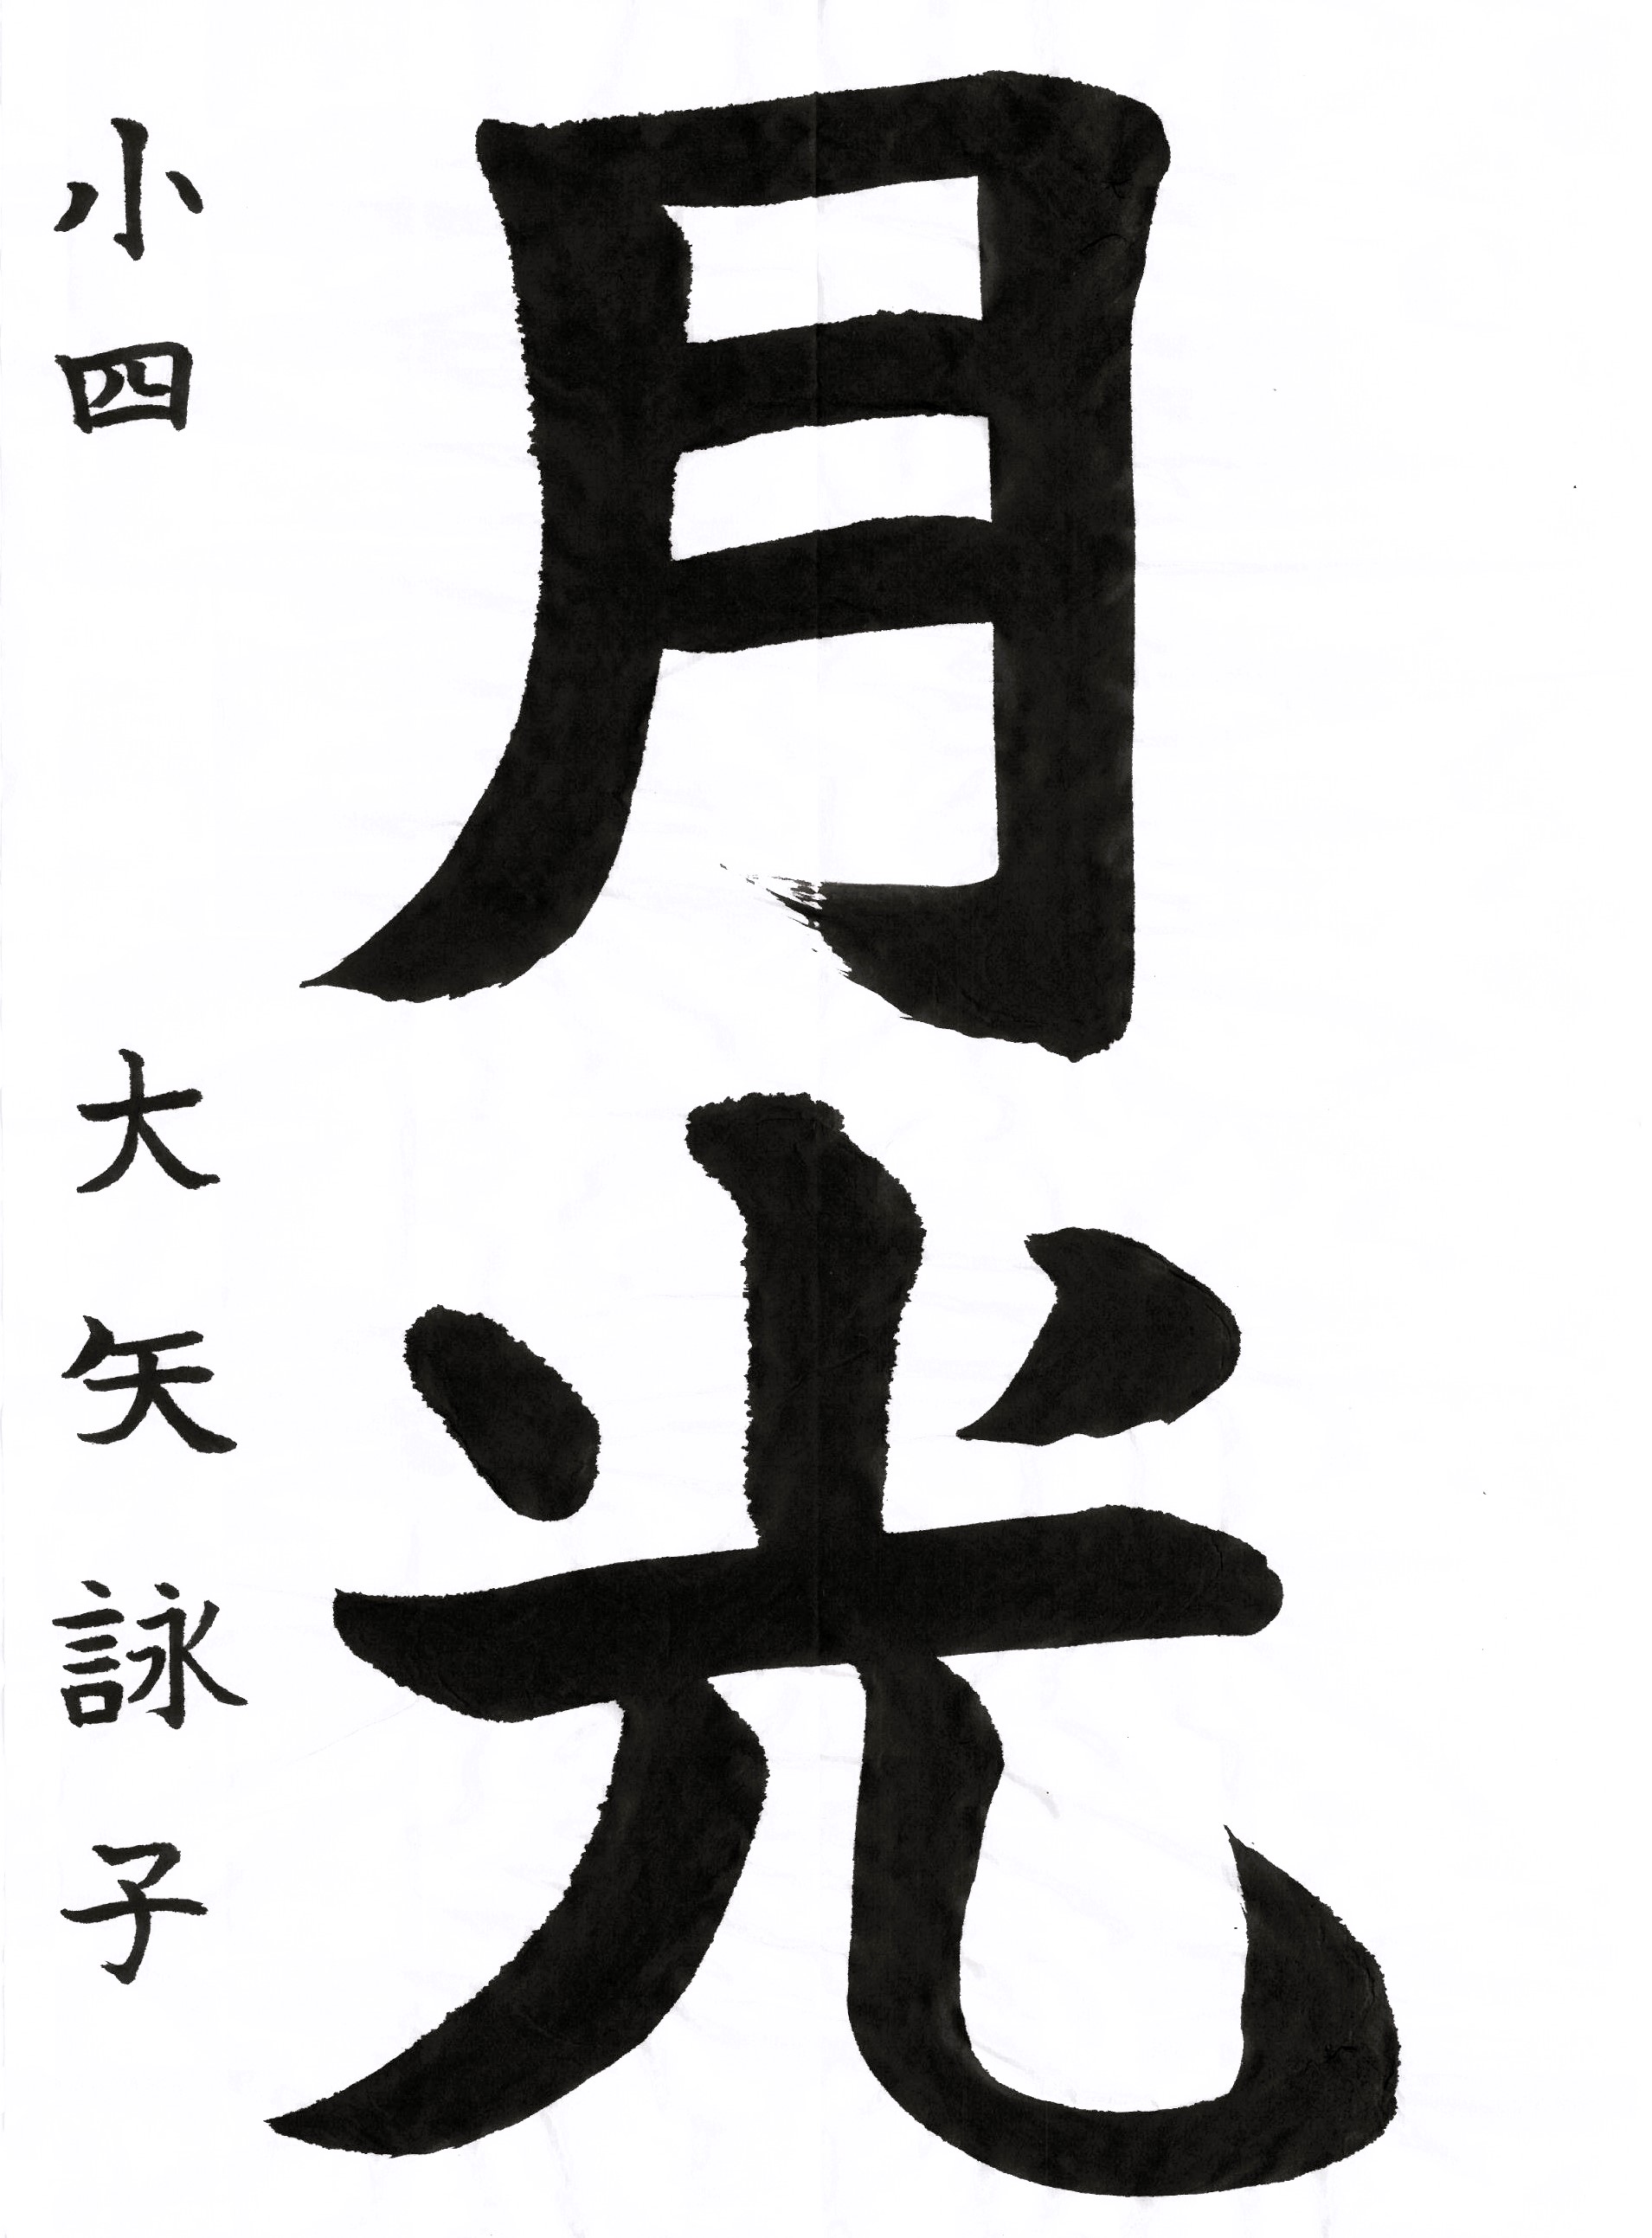 月光
小四 大矢詠子